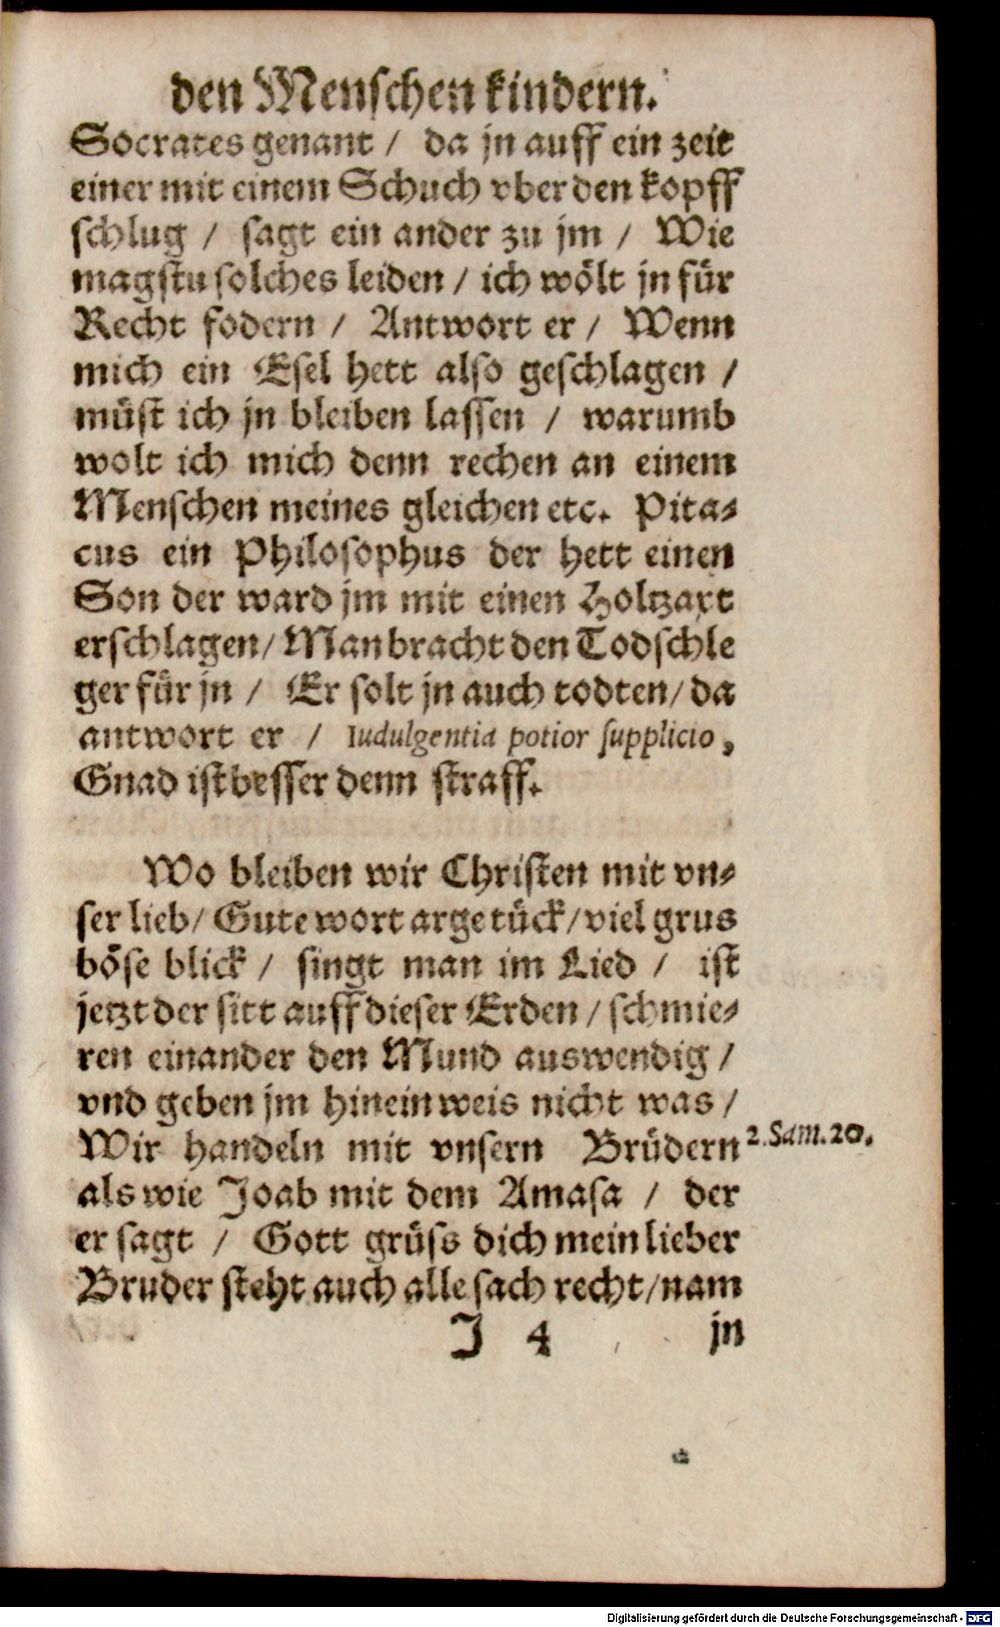 den Menschen kindern.
Socrates genant / da jn auff ein zeit
einer mit einem Schuch vber den kopff
schlug / sagt ein ander zu jm / Wie
magstu solches leiden / ich wölt jn für
Recht fodern / Antwort er / Wenn
mich ein Esel hett also geschlagen /
müst ich jn bleiben lassen / warumb
wolt ich mich denn rechen an einem
Menschen meines gleichen etc. Pita-
cus ein Philosophus der hett einen
Son der ward jm mit einen Holtzaxt
erschlagen / Man bracht den Todschle
ger für jn / Er solt jn auch todten / da
antwort er / Iudulgentia potior supplicio,
Gnad ist besser denn straff.
Wo bleiben wir Christen mit vn-
ser lieb / Gute wort arge tück / viel grus
böse blick / singt man im Lied / ist
jetzt der sitt auff dieser Erden / schmie-
ren einander den Mund auswendig /
vnd geben jm hinein weis nicht was /
Wir handeln mit vnsern Brüdern
2. Sam. 20.
als wie Joab mit dem Amasa / der
er sagt / Gott grüss dich mein lieber
Bruder steht auch alle sach recht / nam
J 4 jn
Digitalisierung gefördert durch die Deutsche Forschungsgemeinschaft - DFG